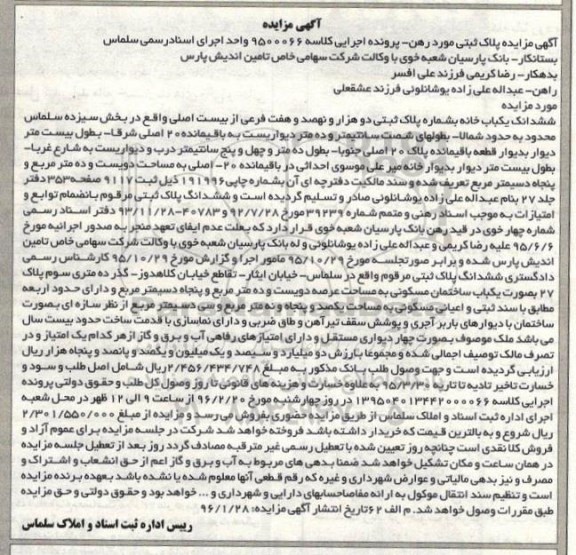 آگهی مزایده
آگهی مزایده پلاک ثبتی مورد رهن- پرونده اجرایی کلاسه ۹۵۰۰۰۶۶ واحد اجرای اسنادرسمی سلماس
بستانکار- بانک پارسیان شعبه خوی با وکالت شرکت سهامی خاص تامین اندیش پارس
بدهکار- رضا کریمی فرزند علی افسر
راهن- عبداله علی زاده یوشانلوئی فرزند عشقعلی
مورد مزایده
ششدانگ یکباب خانه بشماره پلاک ثبتی دو هزار و نهصد و هفت فرعی از بیست اصلی واقع در بخش سیزده سلماس
محدود به حدود شمالا- بطولهای شصت سانتیمتر و ده متر دیواریست به باقیمانده ۲۰ اصلی شرقا- بطول بیست متر
دیوار بدیوار قطعه باقیمانده پلاک ۲۰ اصلی جنوبا- بطول ده متر و چهل و پنج سانتیمتر درب و دیواریست به شارع غربا-
بطول بیست متر دیوار بدیوار خانه میر علی موسوی احداثی در باقیمانده ۲۰- اصلی به مساحت دویست و ده متر مربع و
پنجاه دسیمتر مربع تعریف شده و سند مالکیت دفترچه ای آن بشماره چاپی ۱۹۱۹۹۶ ذیل ثبت ۹۱۱۷ صفحه ۳۵۳ دفتر
جلد ۲۷ بنام عبداله علی زاده یوشانلوئی صادر و تسلیم گردیده است و ششدانگ پلاک ثبتی مرقوم بانضمام توابع و
امتیازات به موجب اسناد رهنی و متمم شماره ۳۹۲۳۹ مورخ ۹۲/۷/۲۸ و ۴۰۷۸۳-۹۳/۱۱/۲۸ دفتر اسناد رسمی
شماره چهار خوی در قید رهن بانک پارسیان شعبه خوی قرار دارد که بعلت عدم ایفای تعهد منجر به صدور اجرائیه مورخ
۹۵/۶/۶ علیه رضا کریمی و عبداله علی زاده یوشانلوئی و له بانک پارسیان شعبه خوی با وکالت شرکت سهامی خاص تامین
اندیش پارس شده و برابر صورتجلسه مورخ ۹۵/۱۰/۲۹ مامور اجرا و گزارش مورخ ۹۵/۱۰/۲۹ کارشناس رسمی
دادگستری ششدانگ پلاک ثبتی مرقوم واقع در سلماس- خیابان ایثار- تقاطع خیابان کلاهدوز- گذر ده متری سوم پلاک
۲۷ بصورت یکباب ساختمان مسکونی به مساحت عرصه دویست و ده متر مربع و پنجاه دسیمتر مربع و دارای حدود اربعه
مطابق با سند ثبتی و اعیانی مسکونی به مساحت یکصد و پنجاه و نه متر مربع و سی دسیمتر مربع از نظر سازه ای بصورت
ساختمان با دیوارهای باربر آجری و پوشش سقف تیرآهن و طاق ضربی و دارای نماسازی با قدمت ساخت حدود بیست سال
می باشد ملک موصوف بصورت چهار دیواری مستقل و دارای امتیازهای رفاهی آب و برق و گاز از هر کدام یک امتیاز و در
تصرف مالک توصیف اجمالی شده و مجموعا بارزش دو میلیارد و سیصد و یک میلیون و یکصد و پانصد و پنجاه هزار ریال
ارزیابی گردیده است و جهت وصول طلب بانک مذکور به مبلغ ۲/۴۵۶/۴۳۴/۷۴۸ ریال شامل اصل طلب و سود و
خسارت تاخیر تادیه تا تاریخ ۹۵/۳/۳۰ به علاوه خسارت و هزینه های قانونی تا روز وصول کل طلب و حقوق دولتی پرونده
اجرایی کلاسه ۱۳۹۵۰۴۰۱۳۴۴۲۰۰۰۰۶۶ در روز چهارشنبه مورخ ۹۶/۲/۲۰ از ساعت ۹ الی ۱۲ ظهر در محل شعبه
اجرای اداره ثبت اسناد و املاک سلماس از طریق مزایده حضوری بفروش می رسد و مزایده از مبلغ ۲/۳۰۱/۵۵۰/۰۰۰
ریال شروع و به بالاترین قیمت که خریدار داشته باشد فروخته خواهد شد شرکت در جلسه مزایده برای عموم آزاد و
فروش کلا نقدی است چنانچه روز تعیین شده با تعطیل رسمی غیر مترقبه مصادف گردد روز بعد از تعطیل جلسه مزایده
در همان ساعت و مکان تشکیل خواهد شد ضمنا بدهی های مربوط به آب و برق و گاز اعم از حق انشعاب و اشتراک و
مصرف و نیز بدهی مالیاتی و عوارض شهرداری و غیره که رقم قطعی آنها معلوم شده یا نشده باشد بعهده برنده مزایده
است و تنظیم سند انتقال موکول به ارائه مفاصاحسابهای دارایی و شهرداری و ... خواهد بود و حقوق دولتی و حق مزایده
طبق مقررات وصول خواهد شد. م الف ۶۲ تاریخ انتشار آگهی مزایده: ۹۶/۱/۲۸
رییس اداره ثبت اسناد و املاک سلماس